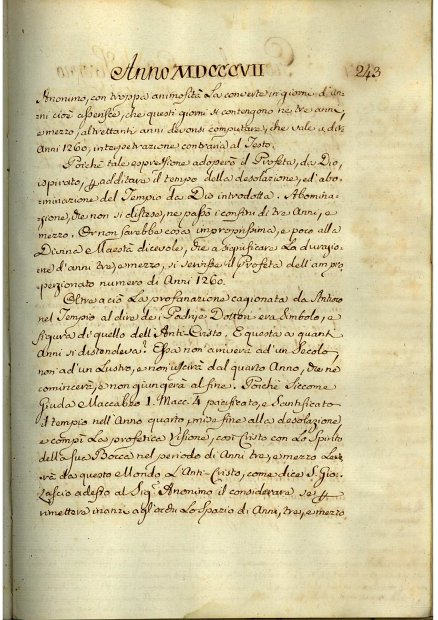 Anno MDCCCVII
243
Anonimo, con troppa animosità la converte in giorni d'an-
ni cioè asserisce, che questi giorni si contengono ne tre anni,
e mezzo, altrettanti anni devonsi computare, che vale a dir
Anni 1260, interpetrazione contraria al Testo.
Poiché tale espressione adoperò il Profeta, da Dio
ispirato, p additare il tempo della desolazione, ed'abo-
minazione del Tempio da Dio introdotta. Abomina-
zione, che non si distese, ne passò i confini di tre Anni, e
mezzo. Or non sarebbe cosa impropissima, e poco alla
Divina e Maestà dicevole, che a significare la durazio-
ne d'anni tre, e mezzo, si servisse il Profeta dell'ampro-
porzionato numero di Anni 1260.
Oltre a ciò la profanazione cagionata da Antioco
nel Tempio al dire de i Padri, e Dottori era Simbolo, e
figura di quello dell'Anti-Cristo, E questa a quant
Anni si distendeva? Essa non arriverà ad'un Secolo,
non ad'un Lustro, e non uscirà dal quarto Anno, che ne
comincerà, e non giungerà al fine. Poiché siccome
Giuda Maccabeo 1. Macc. 4 pacificato, e Santificato
il tempio nell'Anno quarto, mise fine alla desolazione
e compì la profetica Visione, così Cristo con lo Spirito
della sua Bocca nel periodo di Anni tre, e mezzo Leve-
rà da questo Mondo l'Anti-Cristo, come dice S. Gio:
Lascio adesso al Sig. Anonimo il considerare se
rimettere inanzi agl'occhi lo Spazio di Anni, tre, e mezzo